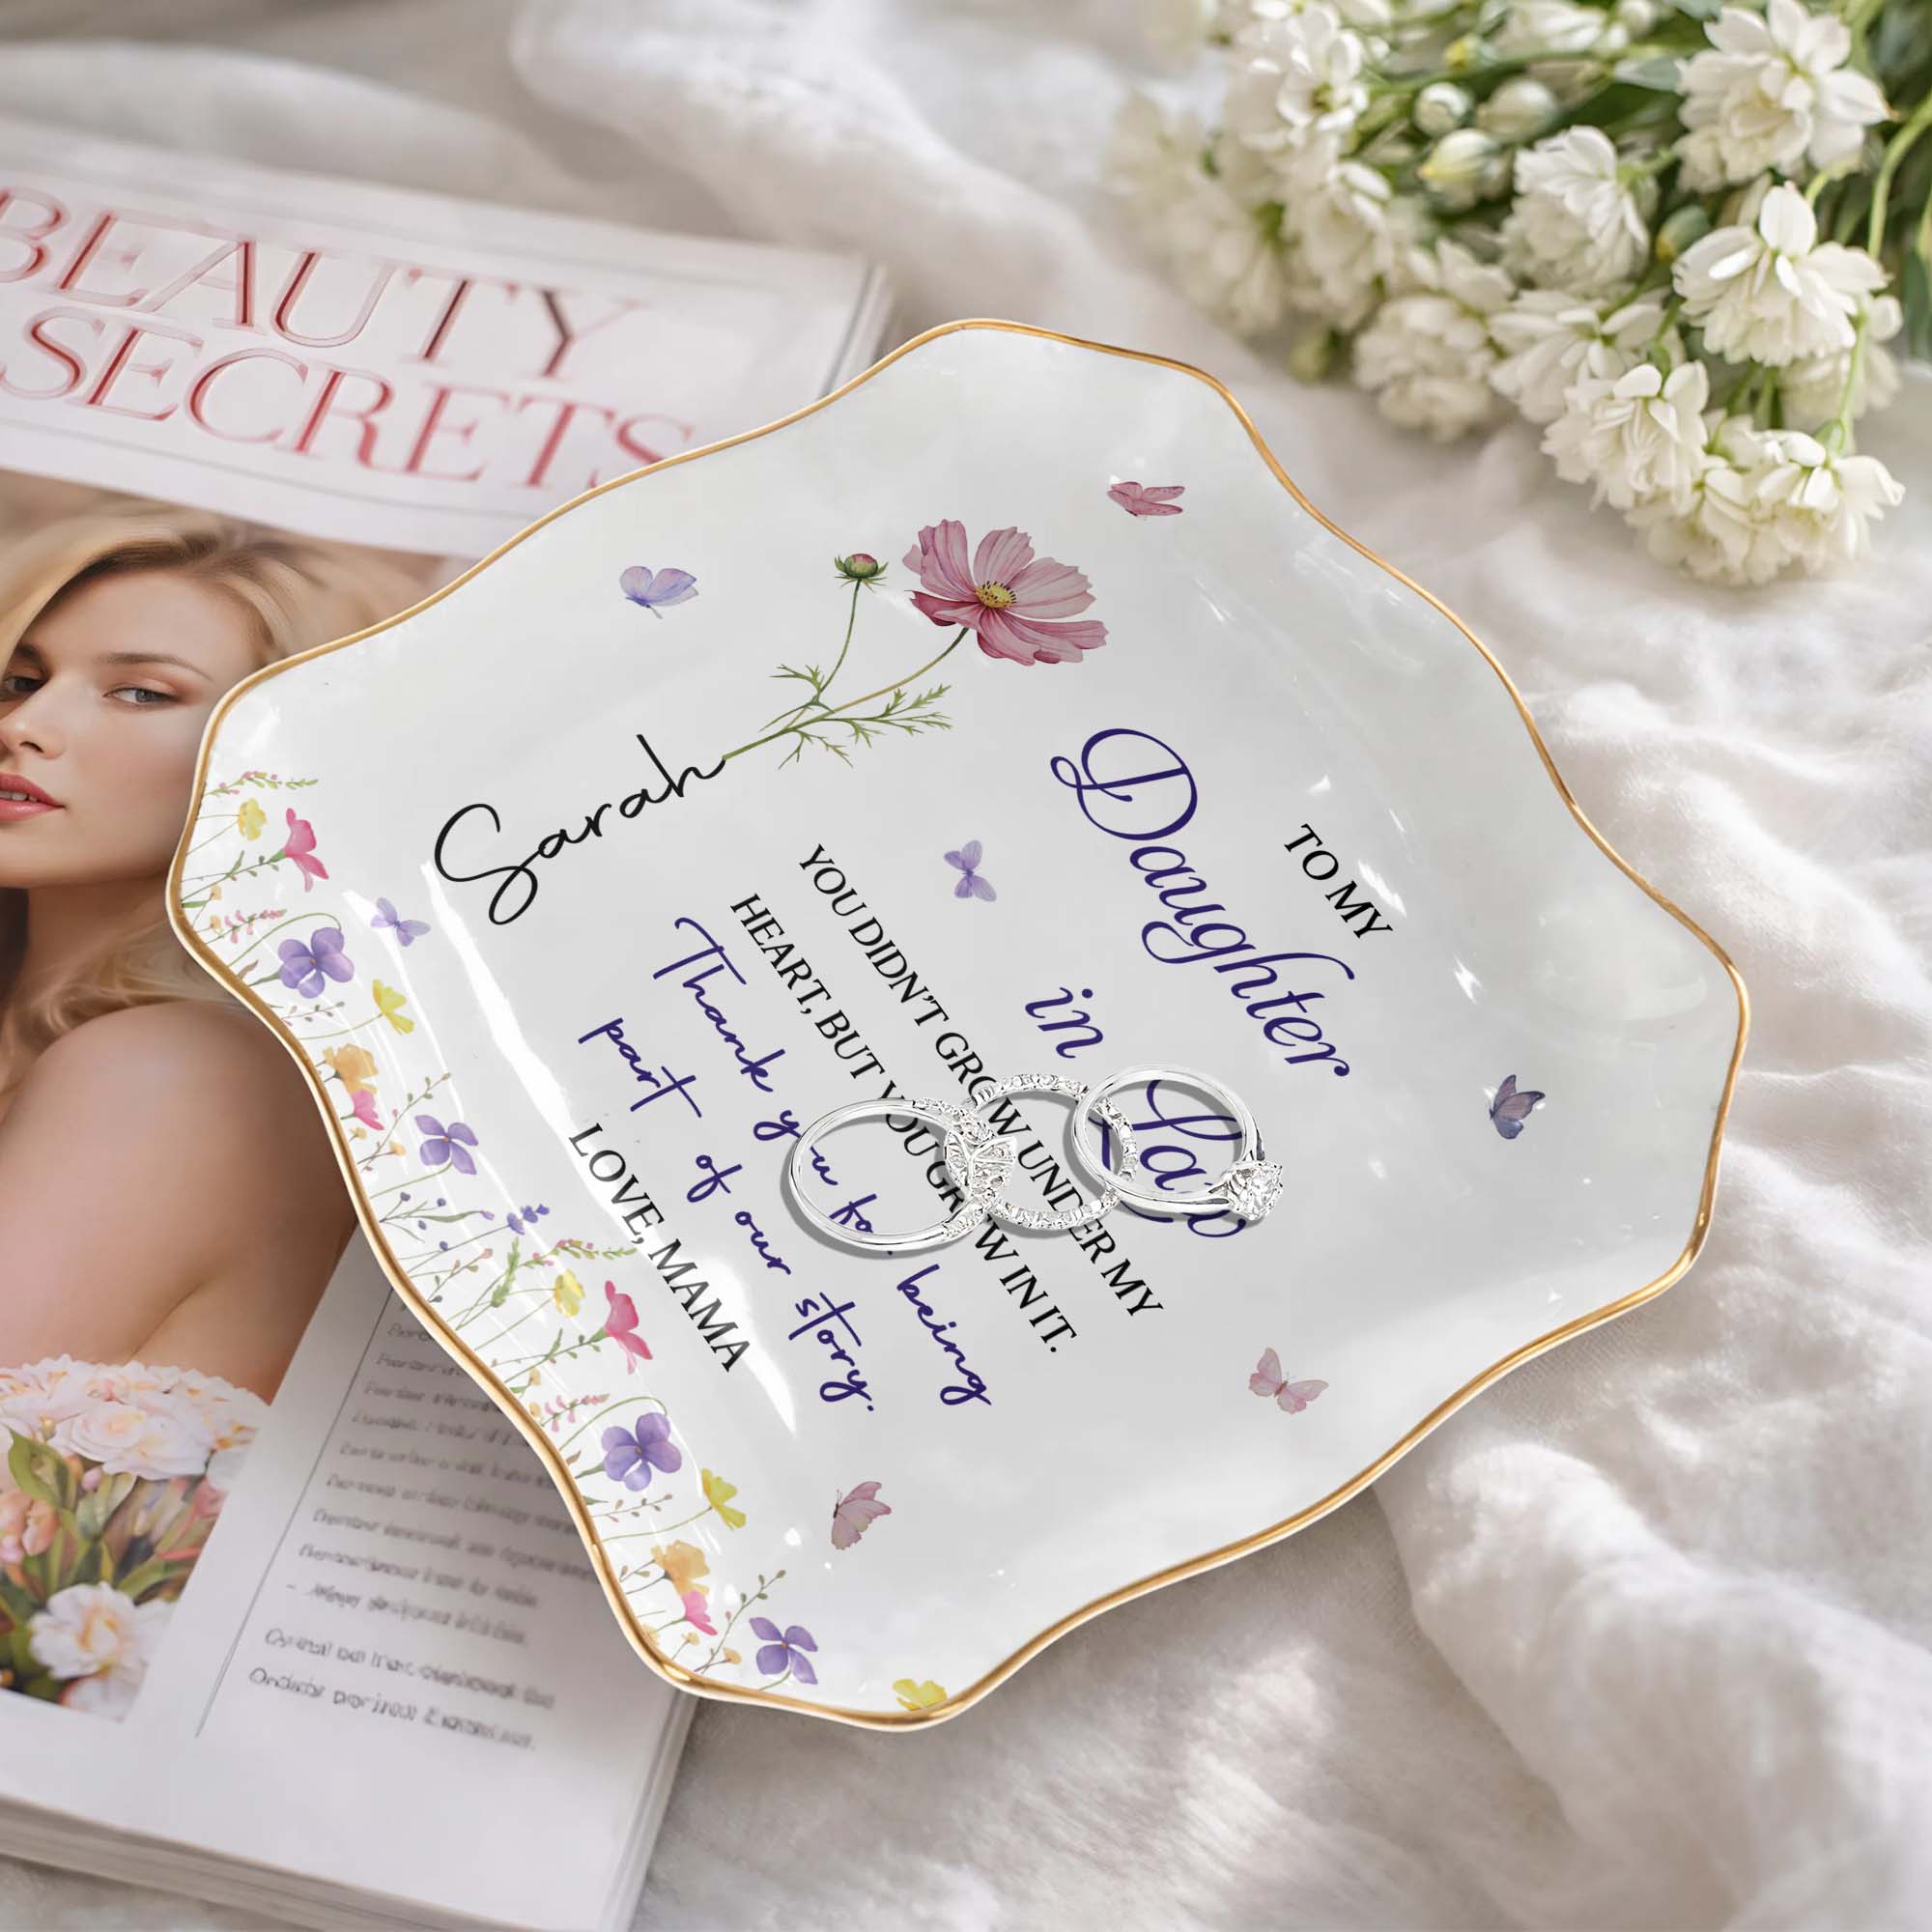 BEAUTY
SECRETS
TO MY
Daughter
in
Law
YOU DIDN'T GROW UNDER MY
HEART, BUT YOU GROW IN IT.
Thank you for being
part of our story.
LOVE, MAMA
Sarah